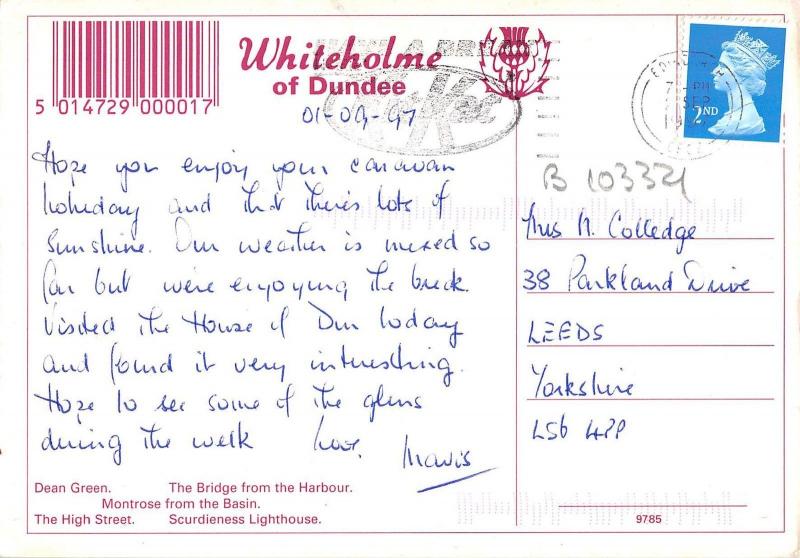 Whiteholme
of Dundee
5 014729 000017
01-09-97
EDINBURGH
SEP
2ND
B 103321
Hope you enjoy your caravan
holiday and that there's lots of
Sunshine. Our weather is mixed so
far but we're enjoying the break.
Visited the House of Dun today
and found it very interesting.
Hope to see some of the glens
during the week Love.
Mavis
Mrs M. Colledge
38 Parkland Drive
LEEDS
Yorkshire
LS6 4PP
Dean Green. The Bridge from the Harbour.
Montrose from the Basin.
The High Street. Scurdieness Lighthouse.
9785